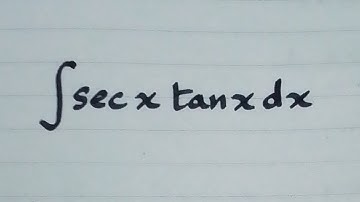 ∫ sec x tan x dx